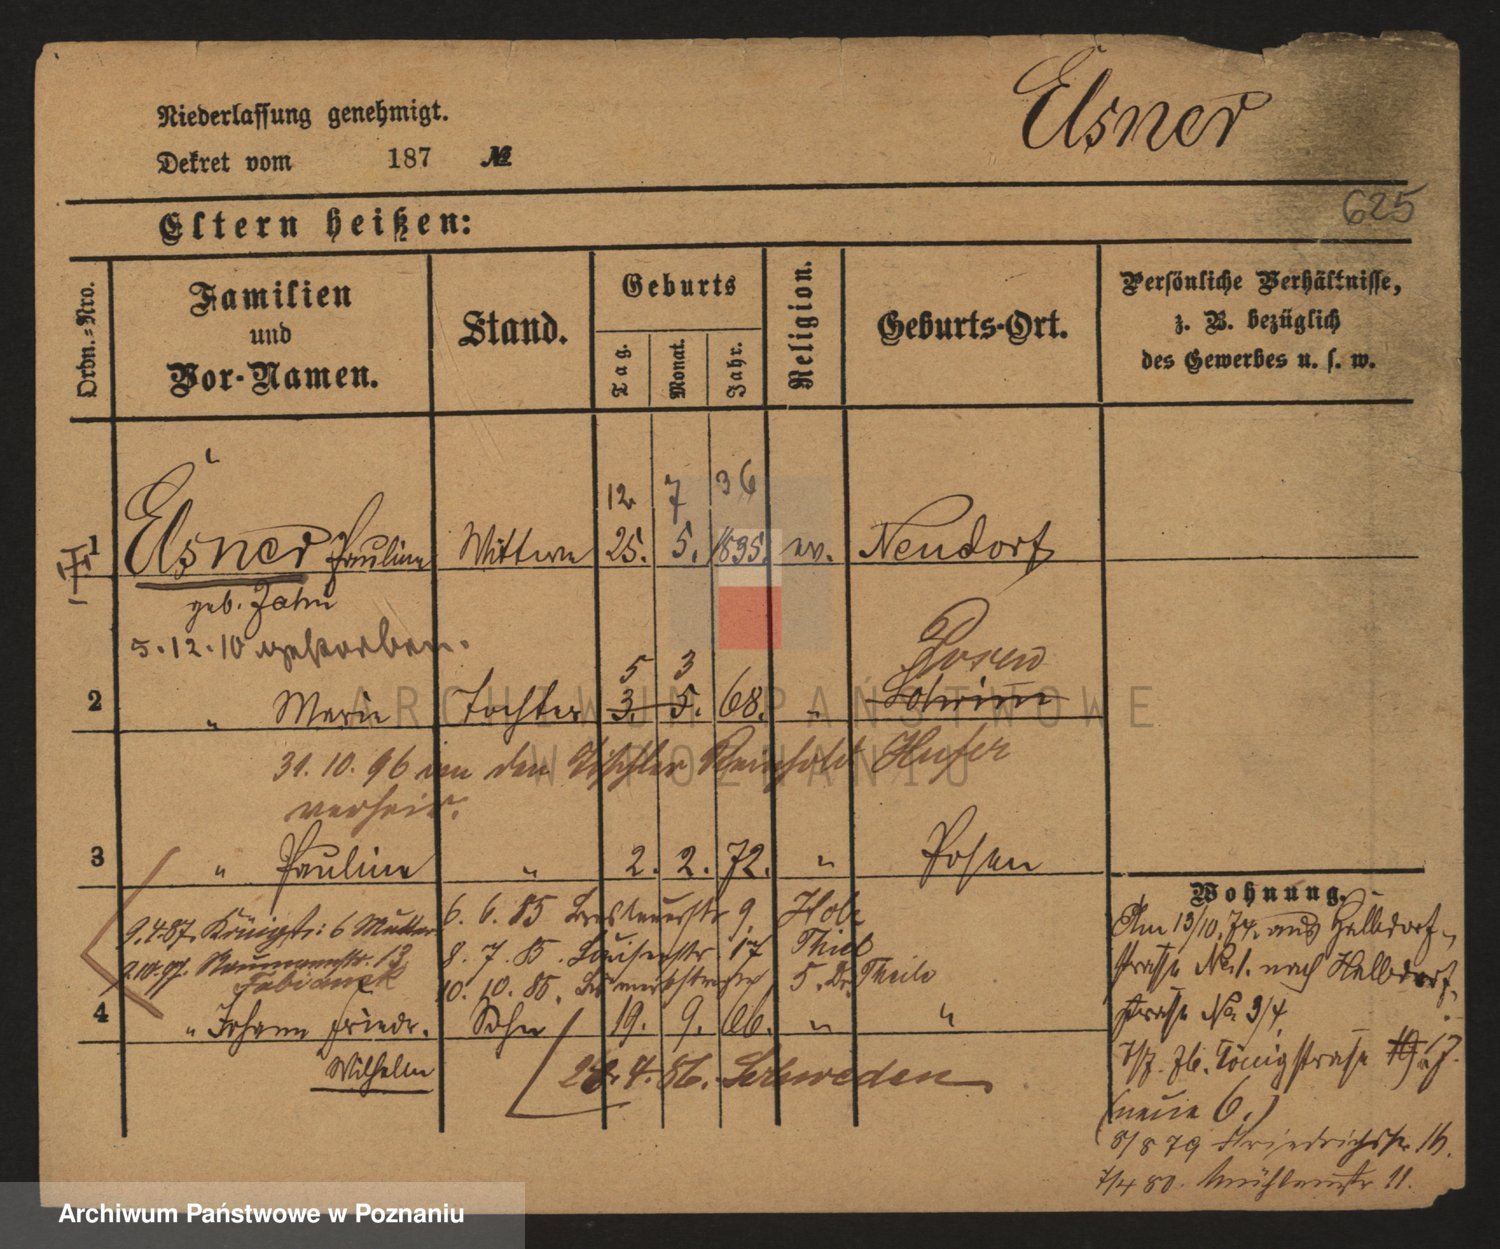 Elsner
Niederlassung genehmigt.
Dekret vom 187 №
625
Eltern heißen:
Ordn.-Nro.
Familien und Vor-Namen.
Stand.
Geburts
Tag.
Monat.
Jahr.
Religion.
Geburts-Ort.
Persönliche Verhältnisse,
z. B. bezüglich
des Gewerbes u. s. w.
12 7 36
1 Elsner Pauline Wittwe 25. 5. 1835. ev. Neudorf
geb. Jahn
5.12.10 gestorben.
5 3 Posen
2 " Marie Tochter 3. 5. 68. " Schrimm
31.10.96 an den Tischler Reinhold Hufer
verheir.
3 " Pauline " 2. 2. 72. " Posen
Wohnung.
9.4.87. Königstr: 6 Mutter
Naumannstr. 13
Fabianek
6. 6. 85 9
8. 7. 85. Louisenstr. 17 Thiel
10. 10. 85. 5. Theile
4 " Johann Friedr. Sohn 19. 9. 66. " "
Wilhelm
28.4.86. Schweden
Am 13/10. 74. aus Halbdorf-
strasse No. 1. nach Halbdorf-
strasse No. 3/4
7/7. 76. Königstrasse 19 17.
(neue 6.)
8/8 79 Friedrichstr. 16.
7/4 80. Mühlenstr. 11.
ARCHIWUM PAŃSTWOWE
W POZNANIU
Archiwum Państwowe w Poznaniu